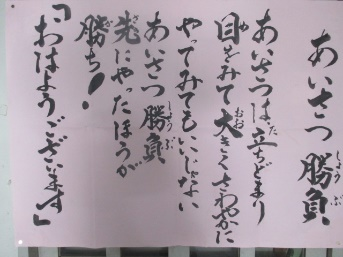 あいさつ勝負
あいさつは立ちどまり
目をみて大きくさわやかに
やってみてもいいじゃない
あいさつ勝負
先にやったほうが
勝ち!
「おはようございます」